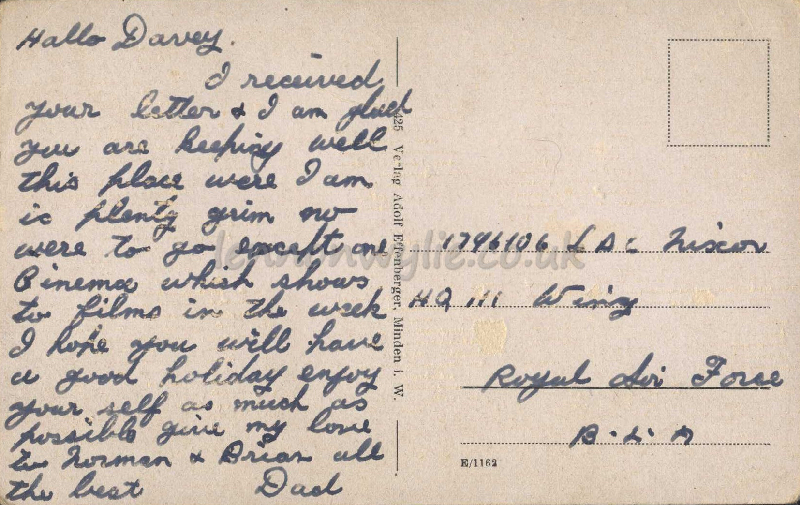 Hallo Davey.
I received
your letter & I am glad
you are keeping well
this place were I am
is plenty grim no
were to go except one
Cinema which shows
to films in the week
I hope you will have
a good holiday enjoy
your self as much as
possible give my love
to Norman & Brian all
the best Dad
425 Verlag Adolf Effenberger, Minden i. W.
1746106 LAC Nixon
HQ 111 Wing
Royal Air Force
B.L.A
E/1162
lennonwylie.co.uk